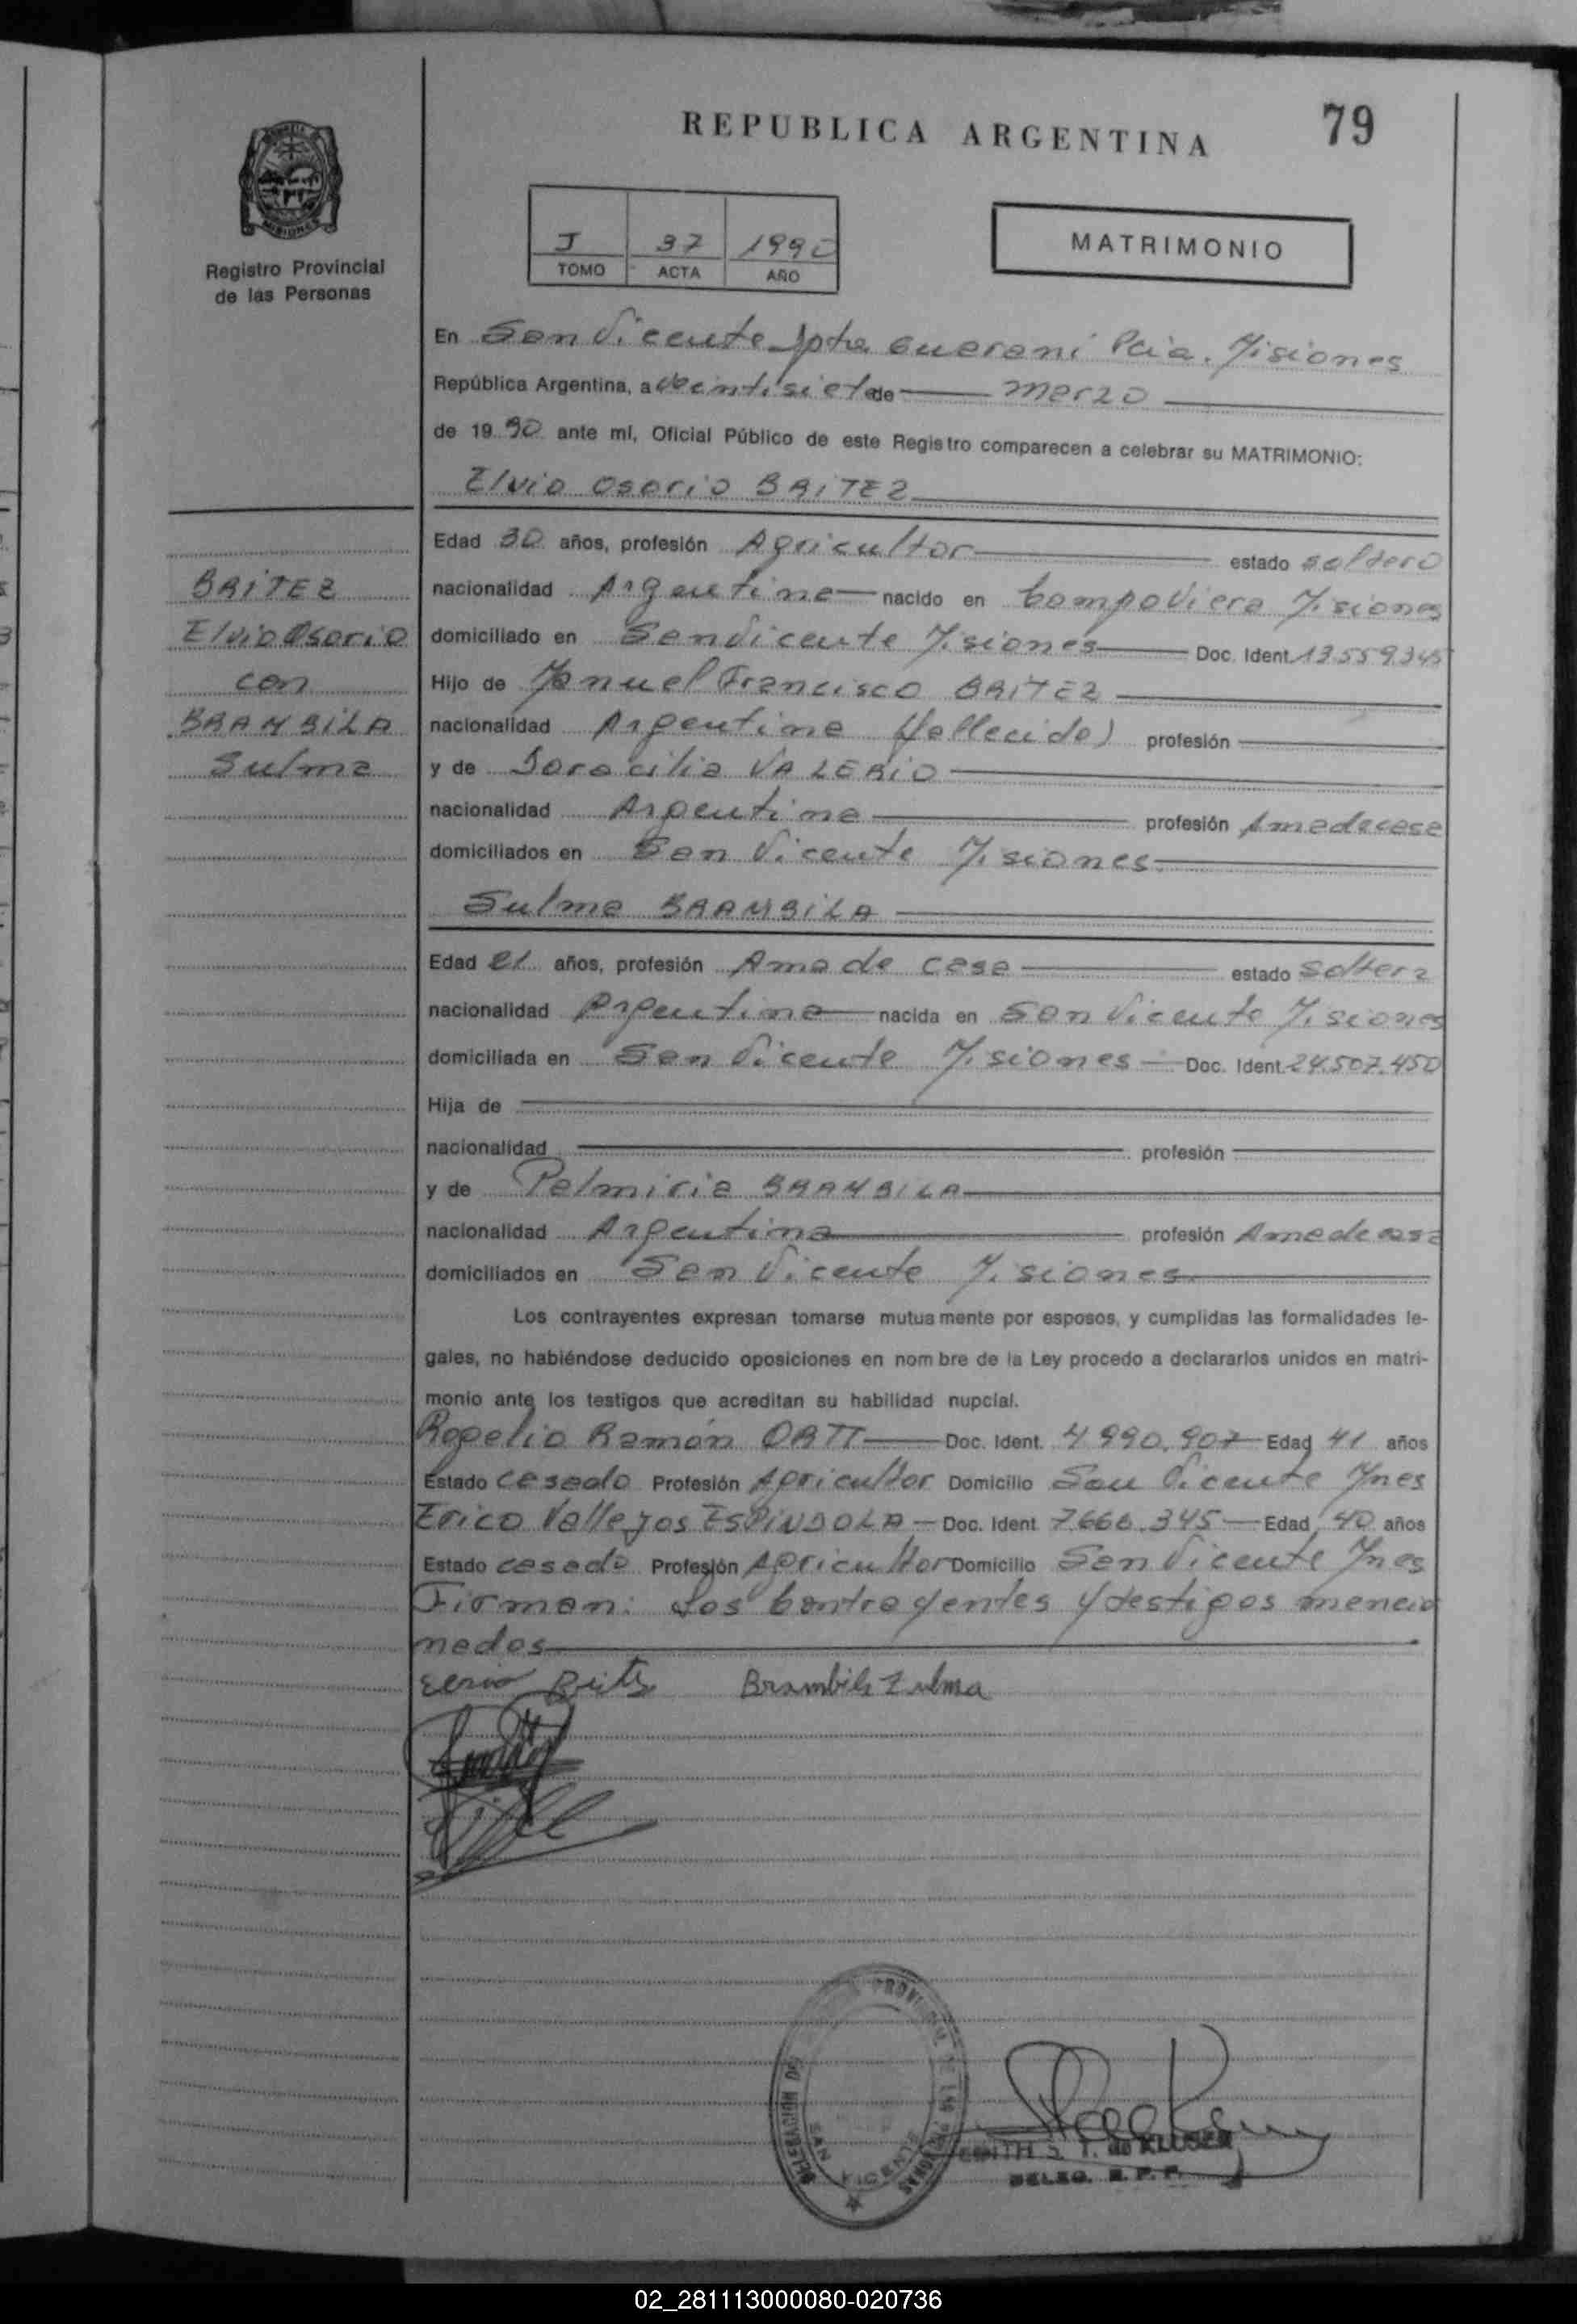 REPUBLICA ARGENTINA
79
MISIONES
Registro Provincial
de las Personas
J 37 1990
TOMO ACTA AÑO
MATRIMONIO
En San Vicente Dpto Guarani Pcia. Misiones
República Argentina, a veintisiete de marzo
de 1990 ante mí, Oficial Público de este Registro comparecen a celebrar su MATRIMONIO:
Elvio Osorio BRITEZ
Edad 30 años, profesión Agricultor estado soltero
nacionalidad Argentina nacido en Campo Viera Misiones
domiciliado en San Vicente Misiones Doc. Ident. 13.559.345
Hijo de Manuel Francisco BRITEZ
nacionalidad Argentina (fallecido) profesión
y de Doracilia VALERIO
nacionalidad Argentina profesión Ama de casa
domiciliados en San Vicente Misiones
BRITEZ
Elvio Osorio
con
BRAMBILA
Sulma
Sulma BRAMBILA
Edad 21 años, profesión Ama de casa estado soltera
nacionalidad Argentina nacida en San Vicente Misiones
domiciliada en San Vicente Misiones Doc. Ident. 24.507.450
Hija de
nacionalidad profesión
y de Palmiria BRAMBILA
nacionalidad Argentina profesión Ama de casa
domiciliados en San Vicente Misiones
Los contrayentes expresan tomarse mutuamente por esposos, y cumplidas las formalidades le-
gales, no habiéndose deducido oposiciones en nombre de la Ley procedo a declararlos unidos en matri-
monio ante los testigos que acreditan su habilidad nupcial.
Rogelio Ramón ORTT Doc. Ident. 4.990.907 Edad 41 años
Estado casado Profesión Agricultor Domicilio San Vicente Mnes
Erico Vallejos ESPINDOLA Doc. Ident 7.666.345 Edad 40 años
Estado casado Profesión Agricultor Domicilio San Vicente Mnes
Firman: Los contrayentes y testigos mencio
nados
Elvio Brites Brambila Zulma
SAN VICENTE
EDITH S. T. de KLUSER
DELEG. R. P. P.
02_281113000080-020736